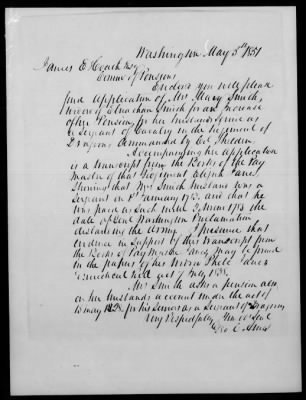 Washington May 5th 1851
James E Heath Esq
Comr of Pensions
Enclosed you will please
find application of Mrs Mary Smith,
widow of Smith for an increase
of her Pension, for her husbands service as
a Sergeant of Cavalry in the Regiment of
Dragoons Commanded by Col. Sheldon.
Accompanying her application
is a transcript from the Books of the Pay
master of that Regiment
Showing that Mrs Smith husband was a
Sergeant on 1st January 1783. and that he
was paid as such until 3d 1783 the
date of Genl Washington Proclamation
disbanding the Army. I presume that
evidence in support of this transcript from
the Books of Pay Master may be found
in the papers of her
Connecticut act of 7 July 1838.
Mrs Smith asks a pension also
on her husbands account under the act of
15 May 1828 for his service as a Sergeant of Dragoons
Very Respectfully